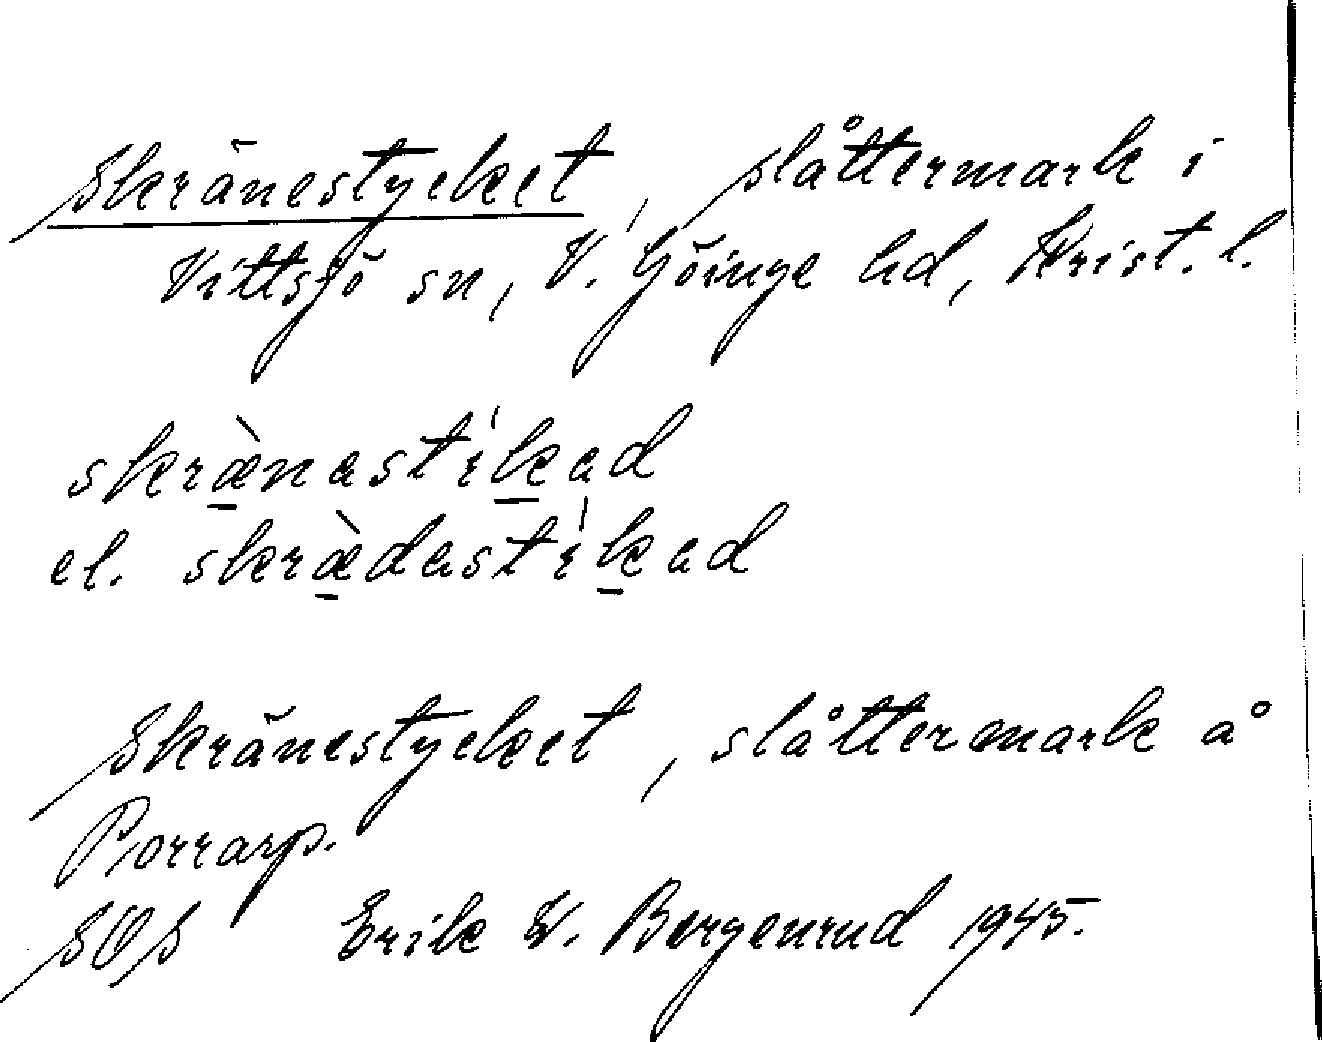 Skränestycket, slåttermark i
Vittsjö sn, V. Göinge hd, Krist. l.
skræ̀nastikad
el. skræ̀dastikad
Skränestycket, slåttermark å
Porrarp.
SOS Erik W. Bergenrud 1945.